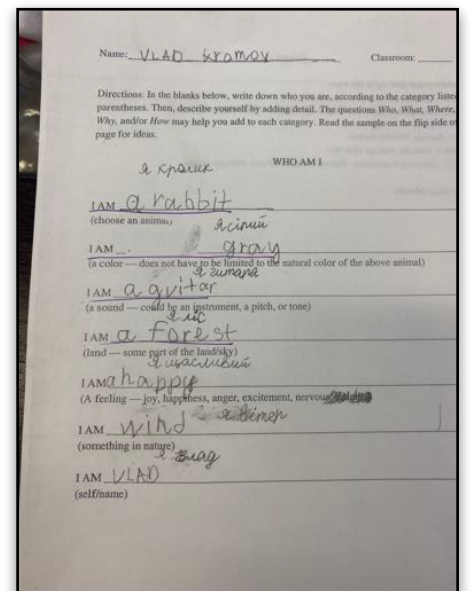 Name: VLAD kromov Classroom:
Directions: In the blanks below, write down who you are, according to the category liste
parentheses. Then, describe yourself by adding detail. The questions Who, What, Where,
Why, and/or How may help you add to each category. Read the sample on the flip side o
page for ideas.
WHO AM I
я кролик
I AM a rabbit
(choose an animal)
я сірий
I AM gray
(a color — does not have to be limited to the natural color of the above animal)
я гитара
I AM a gvitar
(a sound — could be an instrument, a pitch, or tone)
я ліс
I AM a forest
(land — some part of the land/sky)
я щасливий
I AM a happy
(A feeling — joy, happiness, anger, excitement, nervous
I AM wind я вітер
(something in nature)
я влад
I AM VLAD
(self/name)